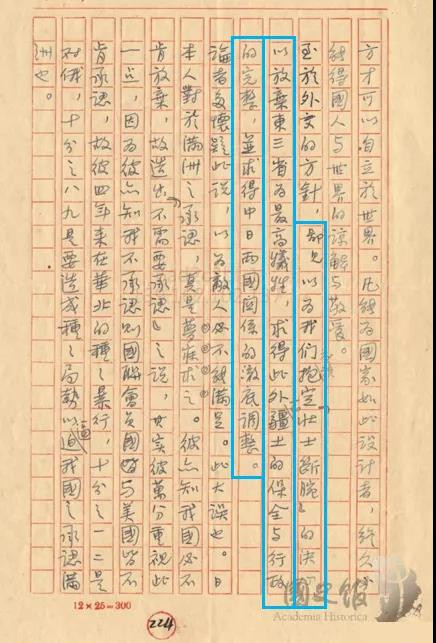 方才可以自立於世界。凡能為國家如此設計者，終久必
能得國人与世界的諒解与敬愛。
至於外交的方針，鄙見以為我們抱定壯士斷腕』的決
以放棄東三省為最高犧牲，求得此外疆土的保全与行政
的完整，並求得中日兩國關係的澈底調整。
論者多懷疑此說，以為敵人必不能滿足。此大誤也。日
本人對於滿洲之承認，真是夢寐求之。彼亦知我國必不
肯放棄，故造出『不需要承認』之說，其實彼萬分重視此
一点，因為彼亦知我不承認則國聯會員國皆与美國皆不
肯承認，故彼四年来在華北的種〻暴行，十分之一二是
对俄，十分之八九是要造成種〻局勢以逼迫我國之承認滿
洲也。
12×25=300
224
國史館
Academia Historica